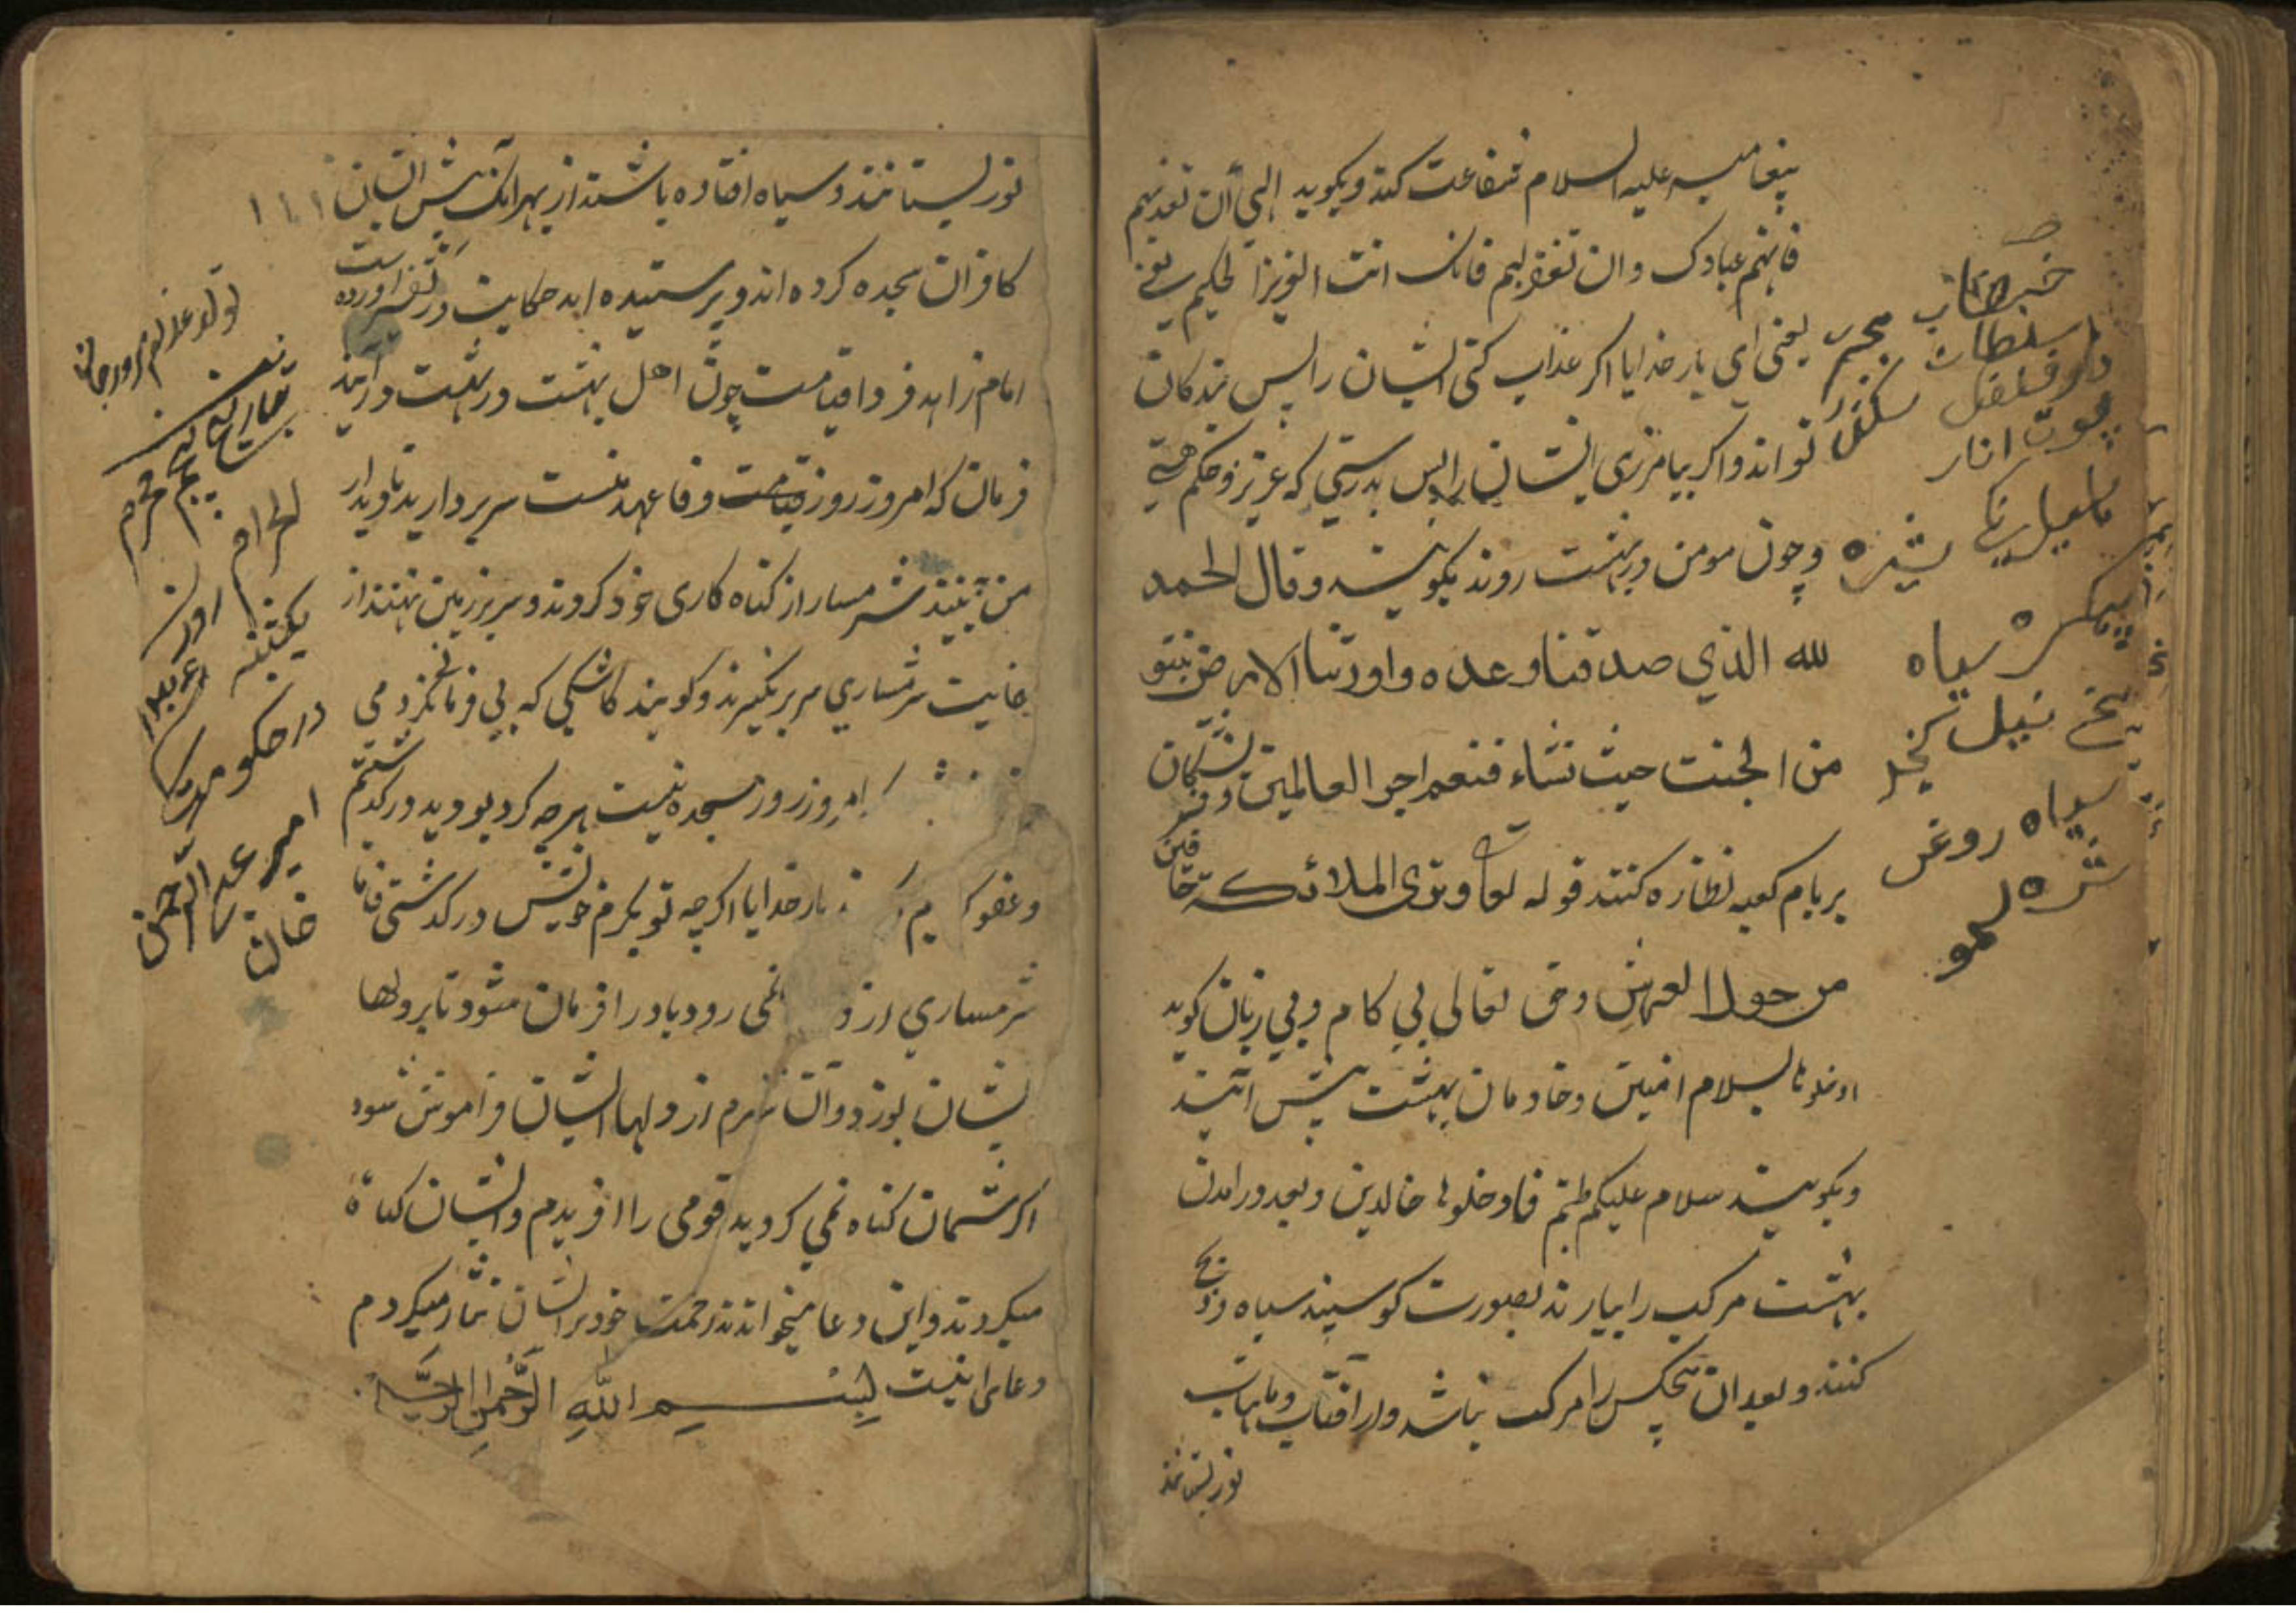 پیغامبر علیه السلام شفاعت کند و بکوید الهی ان تعذبهم
فانهم عبادک وان تغفر لهم فانک انت العزیز الحکیم یعنی
یعنی ای بار خدایا اکر عذاب کنی ایشان را پس بندکان
تو اند واکر بیامرزی ایشان را پس بدرستی که عزیز وحکم هستی
وچون مومن در بهشت روند بکویند وقال الحمد
لله الذي صدقنا وعده واورثنا الارض نتبو
من الجنت حیث نشاء فنعم اجر العالمین وفرشتکان
بر بام کعبه نظاره کنند قوله تعا وتری الملائکة حافین
من حول العرش وحق تعالی بی کام وبی زبان کوید
ادخلوها بسلام امنین وخادمان بهشت پیش آیند
وبکویند سلام علیکم طبتم فادخلوها خالدین وبعد درامدن
بهشت مرک را بیارند بصورت کوسپند سیاه وذبح
کنند وبعد ان هیچکس را مرک نباشد واز آفتاب وماهتاب
نور بستانند
سیاه
تخم نیل
سیاه روغن
نور بستانند وسیاه افتاده باشند از بهر آنک پیش ایشان ۱۱۱
کافران سجده کرده اند وپرستیده اند حکایت در تفسیر آورده است
امام زاهد فردا قیامت چون اهل بهشت در بهشت درآیند
فرمان که امروز روز قیامت وفا عهد منست سر بردارید تا دیدار
من ببینند شرمسار از کناه کاری خود کردند وسر بر زمین نهند از
غایت شرمساری سر برنکیرند وکویند کاشکی که بی فرمانی نکردمی
امروز روز سجده نیست هرچه کرد بودید درکذشتم
وعفو کردم بار خدایا اکرچه تو بکرم خویش درکذشتی فاما
شرمساری از نمی رود باد را فرمان شود تا بر دلها
ایشان بوزد وآن شرم از دلها ایشان فراموش شود
اکر شمان کناه نمی کردید قومی را افریدم وایشان کناه
میکردند واین دعا میخواندند رحمت خود بر ایشان نثار میکردم
دعای اینست بسم الله الرحمن الرحیم
بتاریخ
محرم
الحرام
در حکومت
امیر عبد الرحمن
خان